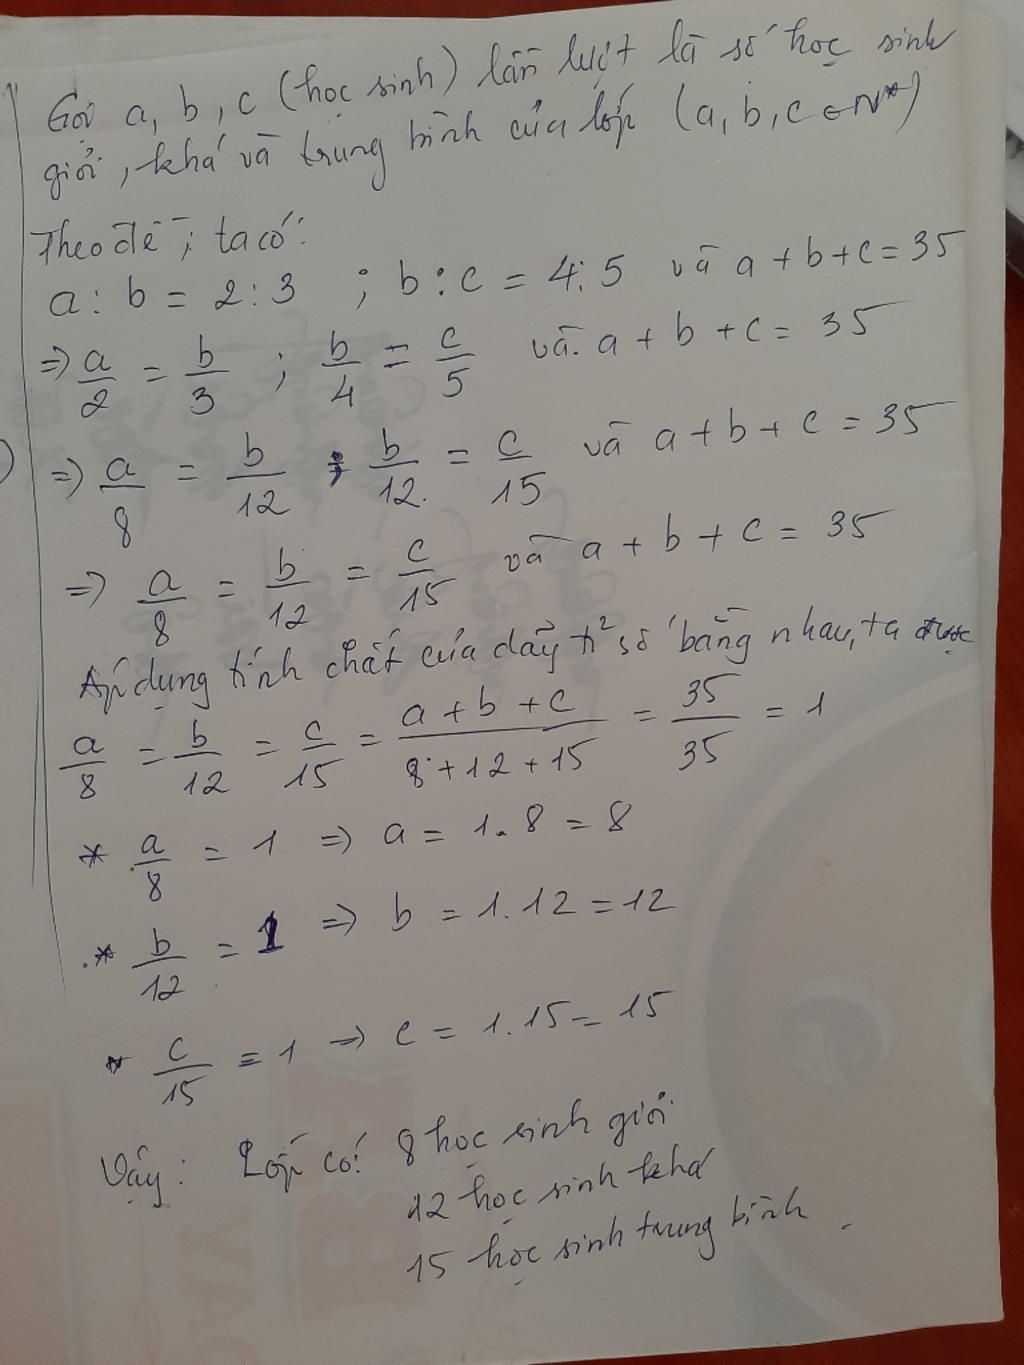 Gọi a, b, c (học sinh) lần lượt là số học sinh
giỏi, khá và trung bình của lớp (a, b, c ∈ N*)
Theo đề, ta có:
a : b = 2 : 3 ; b : c = 4 : 5 và a + b + c = 35
=> a/2 = b/3 ; b/4 = c/5 và a + b + c = 35
=> a/8 = b/12 ; b/12 = c/15 và a + b + c = 35
=> a/8 = b/12 = c/15 và a + b + c = 35
Áp dụng tính chất của dãy tỉ số bằng nhau, ta được
a/8 = b/12 = c/15 = (a + b + c)/(8 + 12 + 15) = 35/35 = 1
* a/8 = 1 => a = 1.8 = 8
* b/12 = 1 => b = 1.12 = 12
* c/15 = 1 => c = 1.15 = 15
Vậy: Lớp có: 8 học sinh giỏi
12 học sinh khá
15 học sinh trung bình.